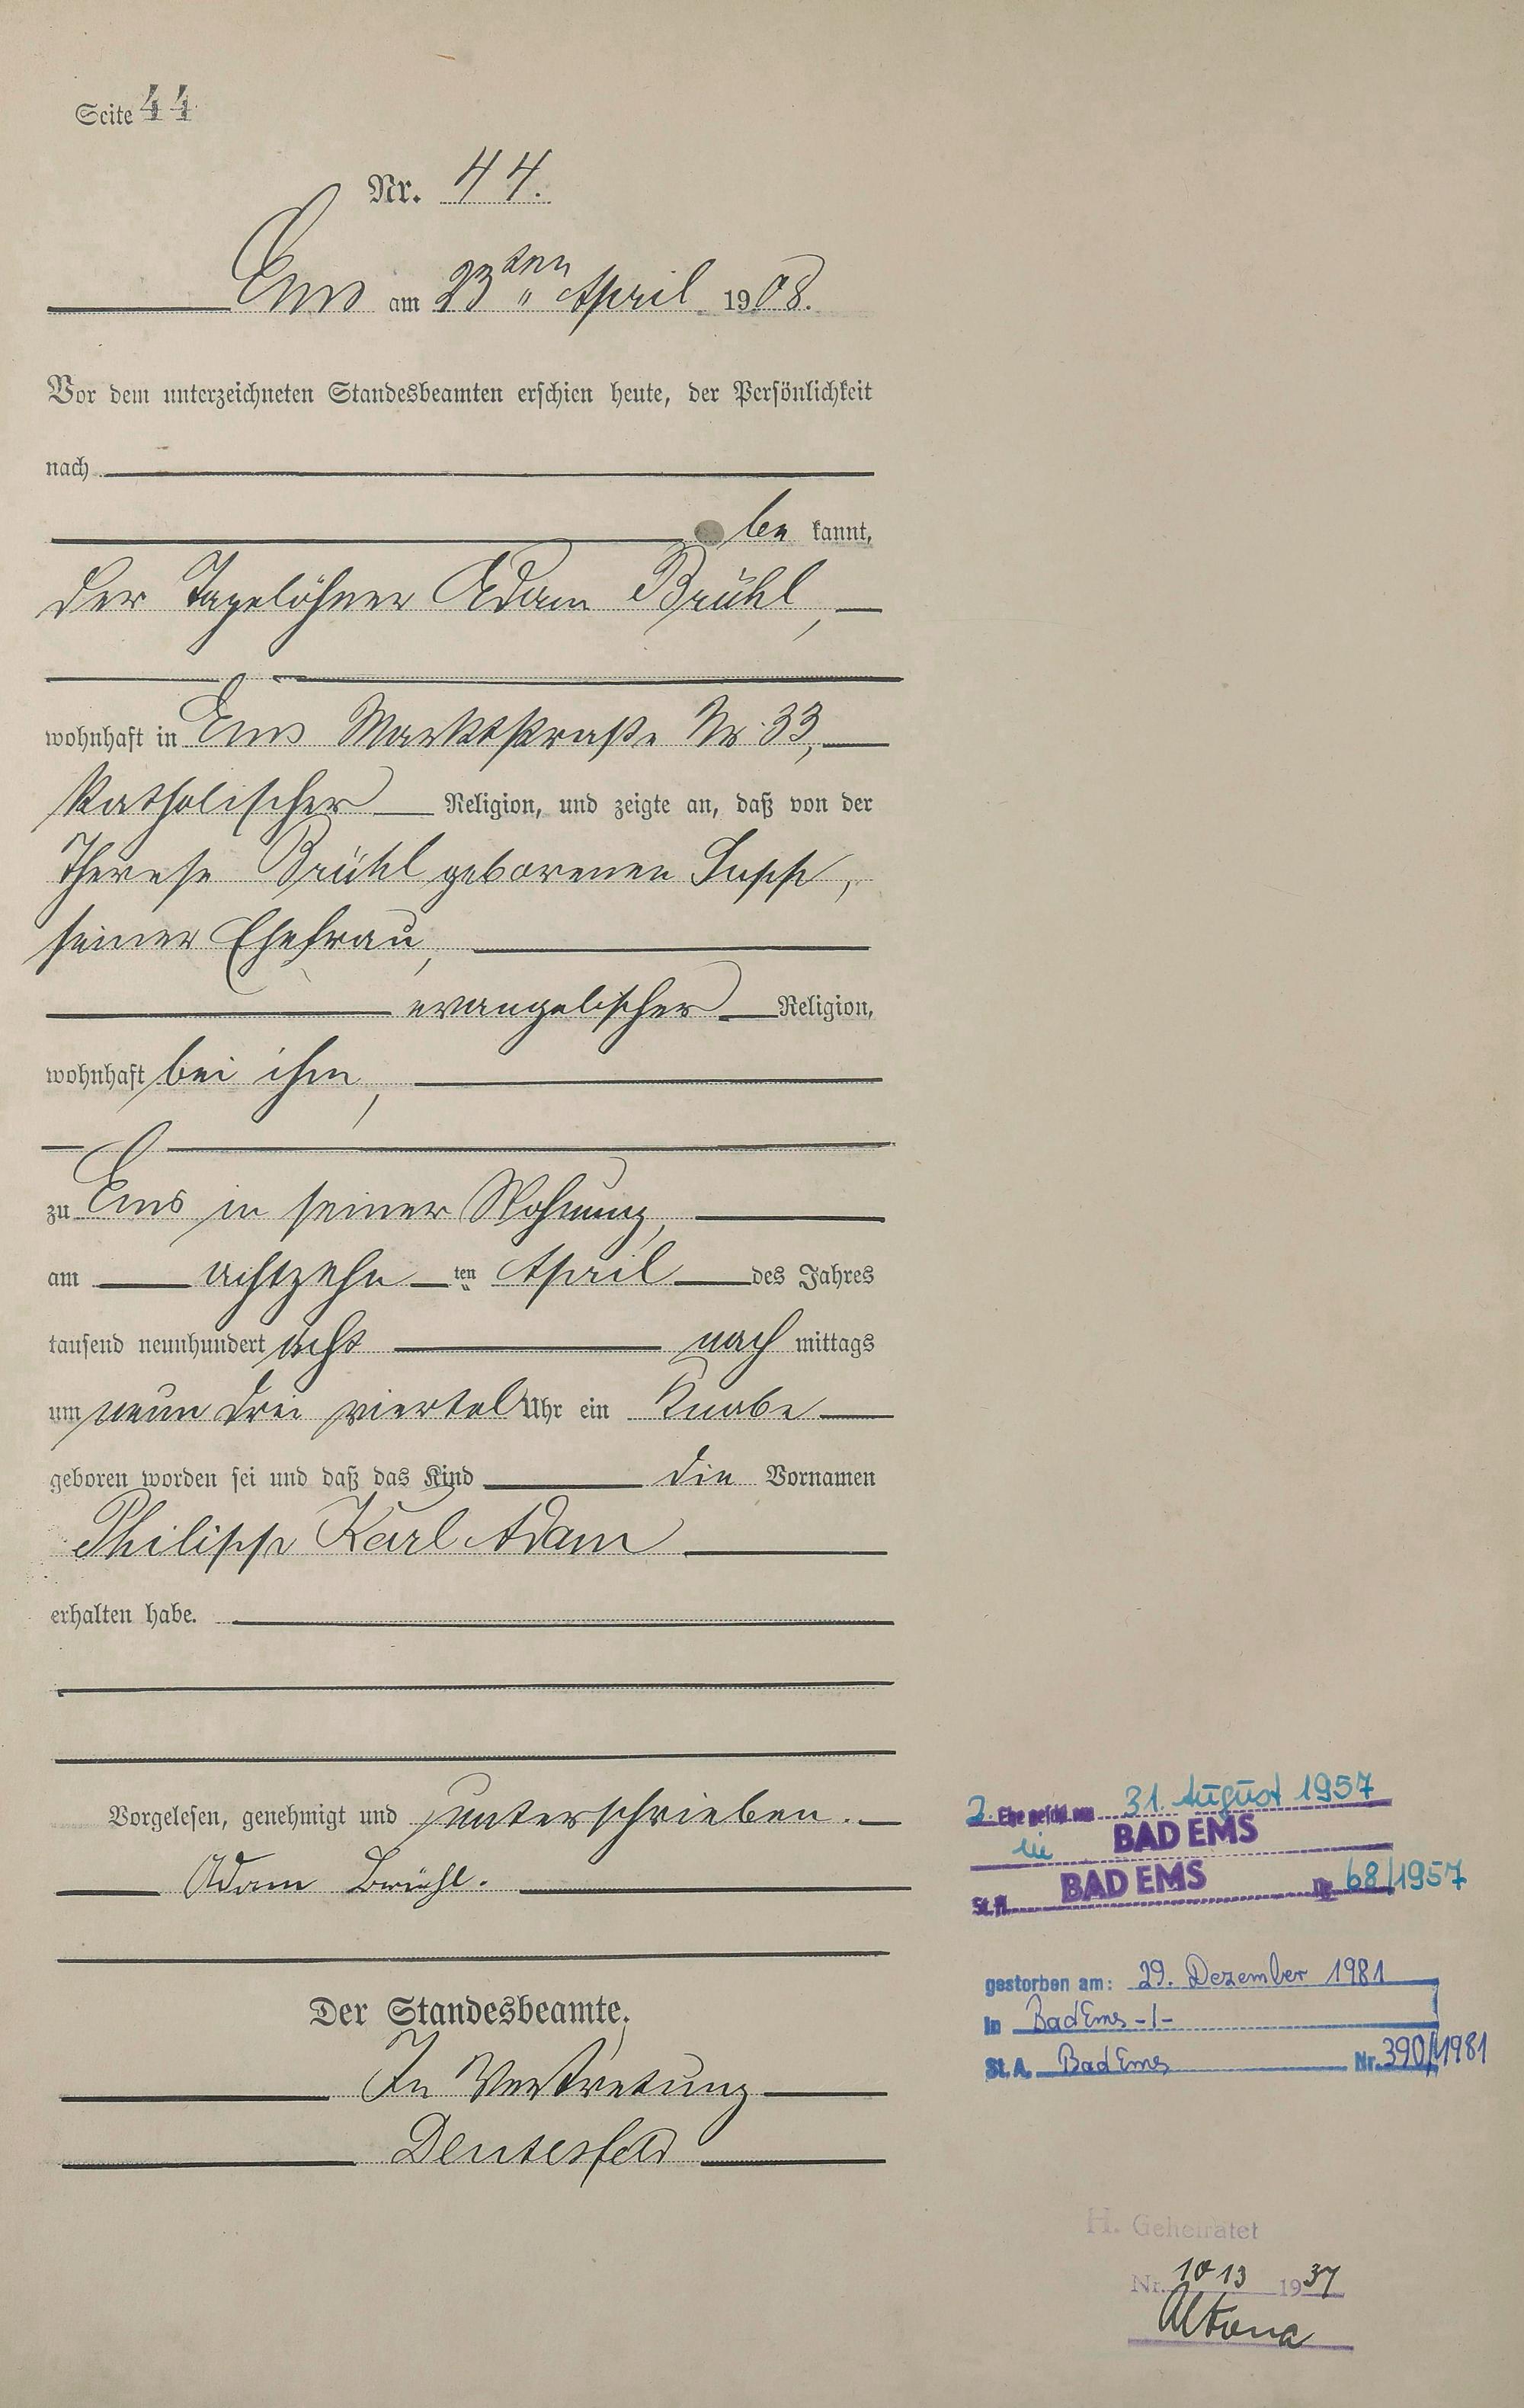 Seite 44
Nr. 44.
Ems am 23ten April 1908.
Vor dem unterzeichneten Standesbeamten erschien heute, der Persönlichkeit
nach
be kannt,
der Tagelöhner Adam Brühl,
wohnhaft in Ems Marktstraße Nr. 33,
katholischer Religion, und zeigte an, daß von der
Therese Brühl geborenen Supp,
seiner Ehefrau,
evangelischer Religion,
wohnhaft bei ihm,
zu Ems in seiner Wohnung,
am achtzehn ten April des Jahres
tausend neunhundert acht nach mittags
um neun drei viertel Uhr ein Knabe
geboren worden sei und daß das Kind die Vornamen
Philipp Karl Adam
erhalten habe.
Vorgelesen, genehmigt und unterschrieben.
Adam Brühl.
Der Standesbeamte.
In Vertretung
2. Ehe geschl. am 31. August 1957
in BAD EMS
St.A. BAD EMS Nr. 68/1957
gestorben am: 29. Dezember 1981
in Bad Ems -/-
St. A. Bad Ems Nr. 390/1981
H. Geheiratet
Nr. 1013 1937
Altona